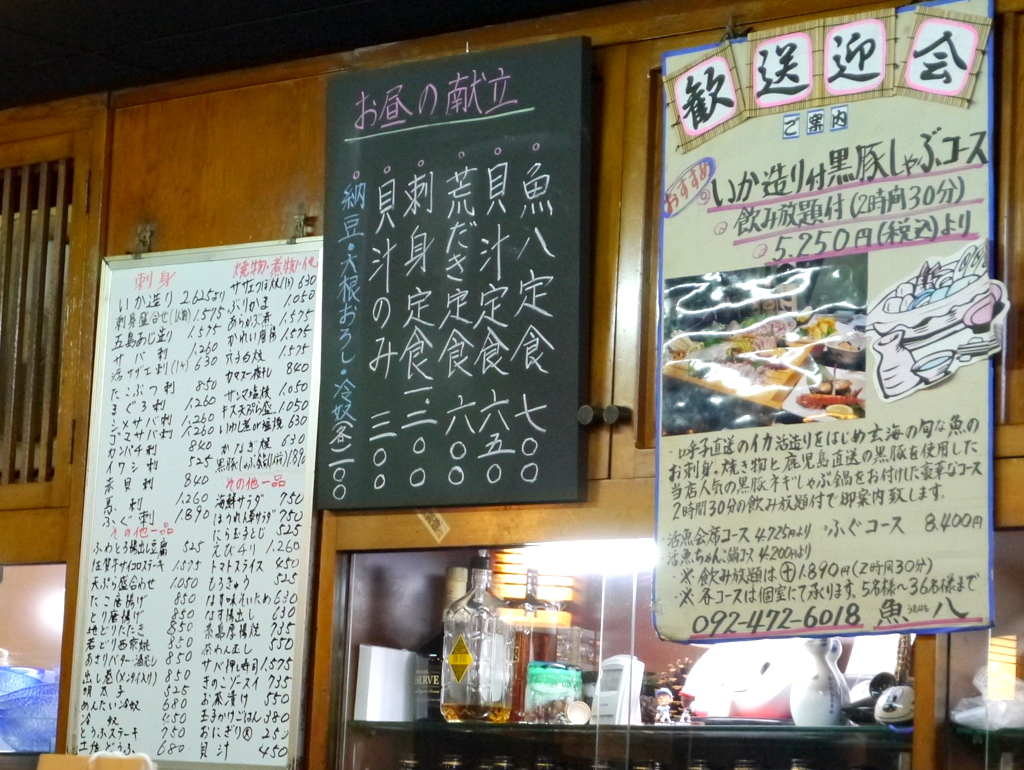 刺身
いか造り 2.625より
刺身盛合せ(1人前) 1.575
五島あじ造り 1.575
サバ刺 1.260
活サザエ刺(1ヶ) 630
たこぶつ刺 850
まぐろ刺 1.260
シメサバ刺 1.260
ゴマサバ刺 1.260
カンパチ刺 840
イワシ刺 525
赤貝刺 840
馬刺 1.260
ふぐ刺 1.890
その他一品
ふわとろ揚出し豆腐 525
佐賀牛サイコロステーキ 1.575
天ぷら盛合わせ 1.050
たこ唐揚げ 850
とり唐揚げ 850
地どりたたき 850
若どり西京焼 850
あさりバター・酒むし 850
出し巻(メンタイ入り) 850
明太子 525
めんたい冷奴 680
冷奴 450
とうふステーキ 750
土佐どうふ 680
焼物・煮物・他
サザエつぼ焼(1ヶ) 630
ぶりかま 1.050
あらかぶ煮 1.575
かれい唐揚 1.575
穴子白焼 1.575
カマス一夜干し 840
サンマ塩焼 1.050
キス天ぷら盛 1.050
いわし煮or塩焼 630
かなぎ焼 630
黒豚しゃぶ鍋(1人前) 1.890
その他一品
海鮮サラダ 750
ほうれん草サラダ 750
にら玉とじ 525
えびチリ 1.260
トマトスライス 450
もろきゅう 525
なす味そいため 630
なす揚出し 630
糸島厚揚焼 735
茶わん正し 550
サバ押し寿司 1.575
きのこソースイ 735
お茶漬け 550
玉子かけごはん 380
おにぎり 250
貝汁 450
お昼の献立
魚八定食 七〇〇
貝汁定食 六五〇
荒だき定食 六〇〇
刺身定食 一.三〇〇
貝汁のみ 三〇〇
納豆・大根おろし・冷奴各二〇〇
歓送迎会
ご案内
おすすめ
いか造り付黒豚しゃぶコース
飲み放題付(2時間30分)
5.250円(税込)より
呼子直送のイカ活造りをはじめ玄海の旬な魚の
お刺身、焼き物と鹿児島直送の黒豚を使用した
当店人気の黒豚ネギしゃぶ鍋をお付けした豪華なコース
2時間30分の飲み放題付で御案内致します。
活魚会席コース 4.725円より ・ふぐコース 8.400円
活魚ちゃんこ鍋コース 4.200円より
※飲み放題は⊕1.890円(2時間30分)
※各コースは個室にて承ります。5名様～36名様まで
092-472-6018 魚八 うおはち